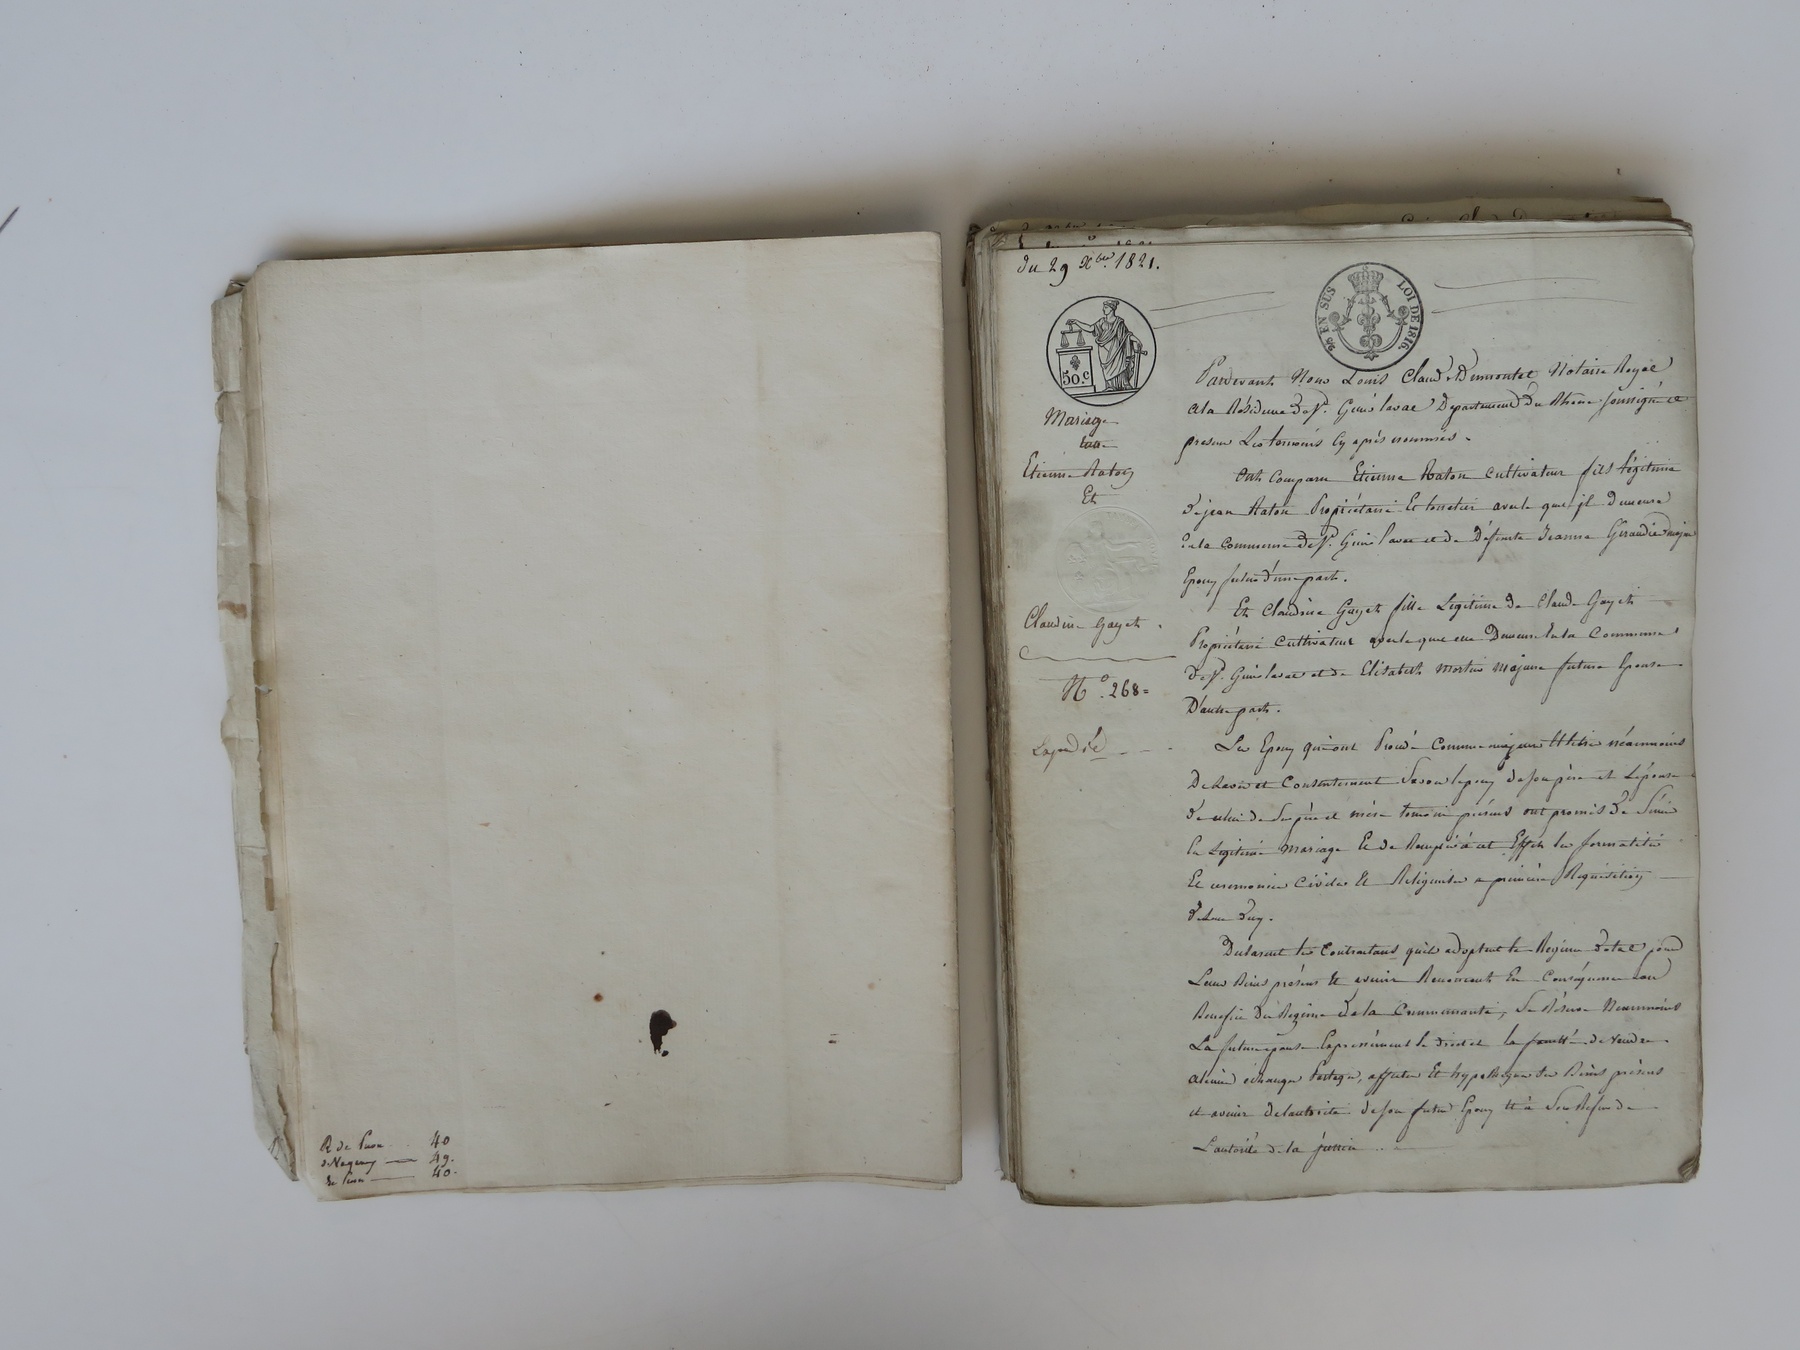 R de
40
49.
40.
du 29 Xbre. 1821.
50.c
EN SUS LOI DE 1816.
Mariage
Etienne Raton
Et
Claudine Gayet.
N°. 268=
Expedié
Pardevant Nous Louis Claude Dumontet Notaire Royal
ala Résidence De St. Genis laval Departement Du Rhône soussigné et
presens Les temoins Cy après nommés.
Ont Comparu Etienne Raton Cultivateur fils légitime
De jean Raton Propriétaire Et avec le quel jl Demeure
En la Commune De St. Genis laval et de Défunte Jeanne Giraudier majeur
Epoux futur d'une part.
Et Claudine Gayet fille Légitime De Claude Gayet
Propriétaire Cultivateur avec le quel elle Demeure En la Commune
De St. Genis laval et de Elisabeth Martin Majeure future Epouse
D'autre part.
Les Epoux quoique Comme majeurs néanmoins
De Lavis et Consentement Savoir lepoux de son père et Lépouse
De celui de Ses père et mère présens ont promis De S'unir
En Légitime Mariage Et de Remplir à cet Effet les formalités
Et ceremonies Civiles Et Religieuses a première Requisition
De Lun D'eux.
Declarent les Contractans quils adoptent le Regime Dotal pour
Leurs Biens présens Et avenir Renoncent En Conséquence au
Benefice Du Regime De la Communauté, Se Réserve Neanmoins
La future épouse Expressément le droit et la faculté de Vendre
aliéner échanger Partager, affecter Et hypothequer Ses Biens présens
et avenir de lautorité de son futur Epoux Et à Son Refus de
L'autorité de la justice